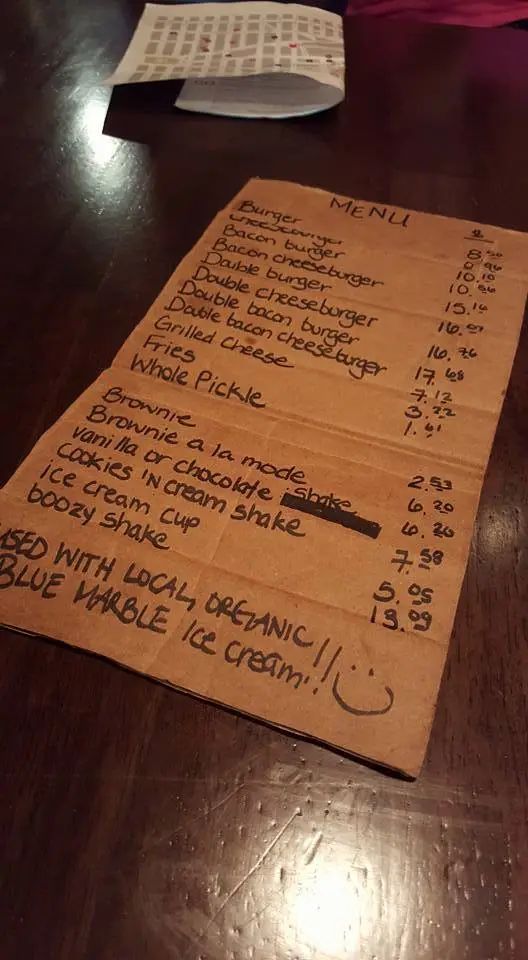 MENU $
Burger 8.50
cheeseburger 8.96
Bacon burger 10.10
Bacon cheeseburger 10.56
Double burger 15.16
Double cheeseburger 16.07
Double bacon burger 16.76
Double bacon cheeseburger 17.68
Grilled Cheese 7.12
Fries 3.22
Whole Pickle 1.61
Brownie 2.53
Brownie a la mode 6.20
vanilla or chocolate shake 6.20
cookies 'N cream shake 7.58
ice cream cup 5.05
boozy shake 13.09
USED WITH LOCAL, ORGANIC
BLUE MARBLE Ice cream!!